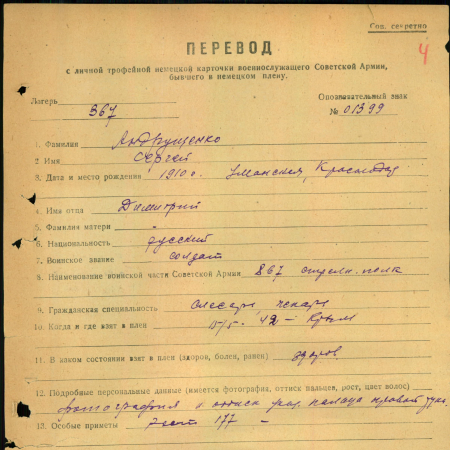 Сов. секретно
4
ПЕРЕВОД
с личной трофейной немецкой карточки военнослужащего Советской Армии,
бывшего в немецком плену.
Лагерь 367
Опознавательный знак
№ 01399
1. Фамилия Андрущенко
2 Имя Сергей
3. Дата и место рождения 1910 г. Уманская, Краснодар
4. Имя отца Димитрий
5. Фамилия матери -
6. Национальность русский
7. Воинское звание солдат
8. Наименование воинской части Советской Армии 867 стрелк. полк
9. Гражданская специальность слесарь, пекарь
10. Когда и где взят в плен 15/5-42 - Крым
11. В каком состоянии взят в плен (здоров, болен, ранен) здоров
12. Подробные персональные данные (имеется фотография, оттиск пальцев, рост, цвет волос)
фотография и оттиск пальца правой рук.
13. Особые приметы рост 177 -